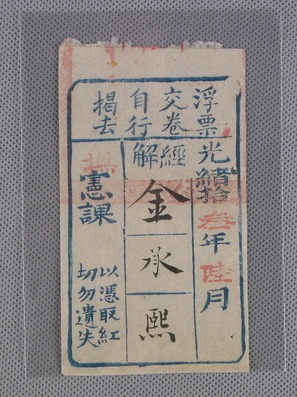 浮票
交卷
自行
揭去
光緒拾叁年陸月
經解
金承熙
憲課
以憑取紅
切勿遺失